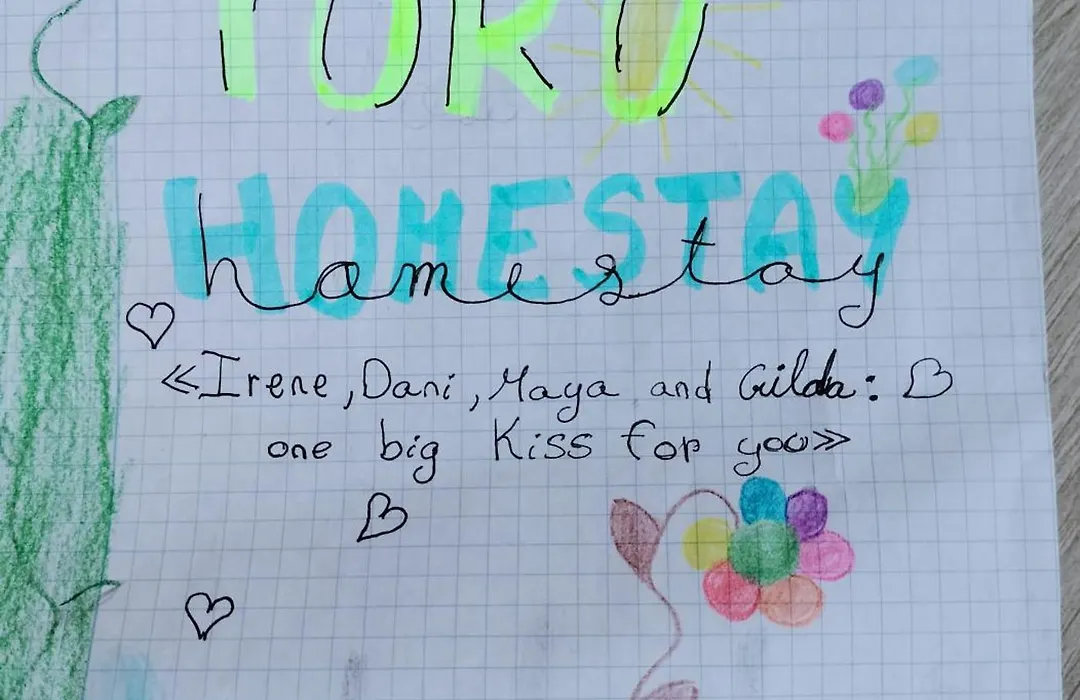 HOMESTAY
homestay
«Irene, Dani, Maya and Gilda:
one big Kiss for you»